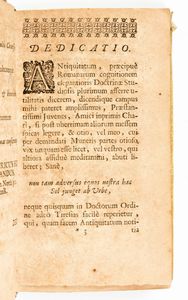 DEDICATIO.
ANtiquitatum, præcipuè
Romanarum cognitionem
elegantioris Doctrinæ Stu-
diosis plurimum afferre u-
tilitatis dicerem, dicendique campus
mihi pateret amplissimus, Præstan-
tissimi Juvenes, Amici inprimis Cha-
ri, si post uberrimam aliorum messem
spicas legere, & otio, vel meo, cui
per demandati Muneris partes otioso,
vix unquam esse licet, vel vestro, qui
altiora assiduè moderantur, abuti li-
beret; Sanè,
non tam adversus equos nostra hæc
Sol jungat ab Urbe,
neque quisquam in Doctorum Ordi-
ne adeò Tiresias facilè reperietur,
qui, quam facem Antiquitatum noti-
tia